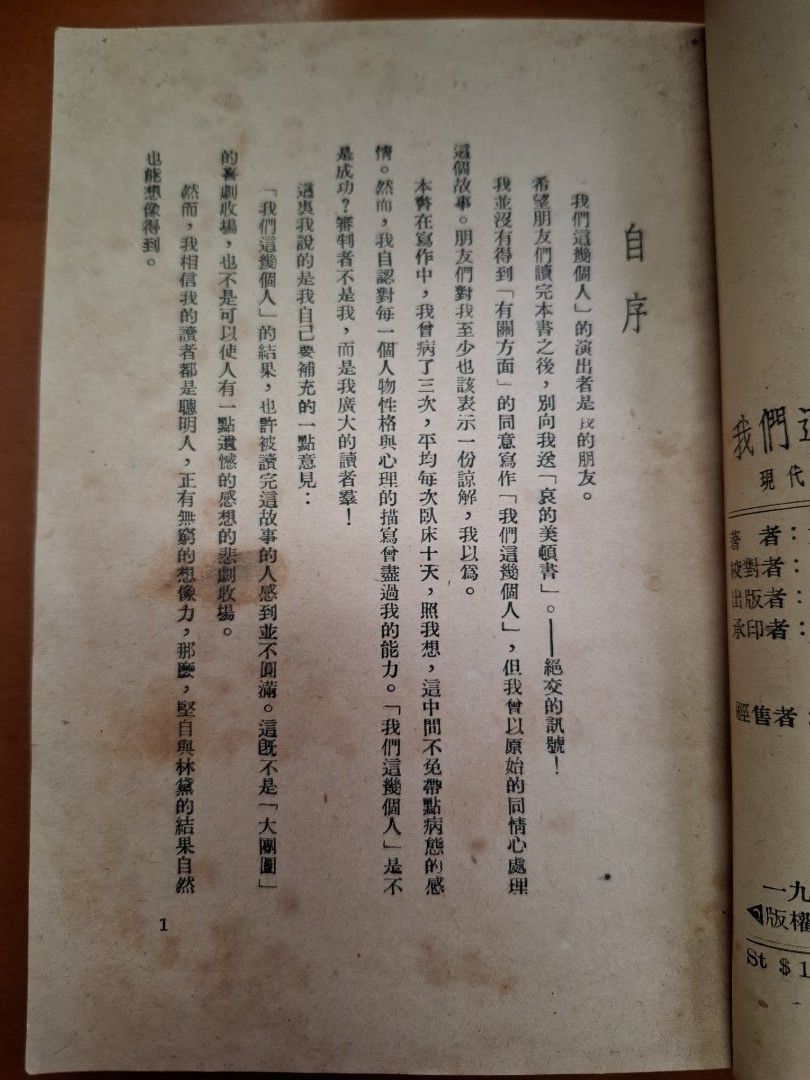 自序
「我們這幾個人」的演出者是我的朋友。
希望朋友們讀完本書之後，別向我送「哀的美頓書」。——絕交的訊號！
我並沒有得到「有關方面」的同意寫作「我們這幾個人」，但我曾以原始的同情心處理
這個故事。朋友們對我至少也該表示一份諒解，我以爲。
本書在寫作中，我曾病了三次，平均每次臥床十天，照我想，這中間不免帶點病態的感
情。然而，我自認對每一個人物性格與心理的描寫曾盡過我的能力。「我們這幾個人」是不
是成功？審判者不是我，而是我廣大的讀者羣！
這裏我說的是我自己要補充的一點意見：
「我們這幾個人」的結果，也許被讀完這故事的人感到並不圓滿。這旣不是「大團圓」
的喜劇收場，也不是可以使人有一點遺憾的感想的悲劇收場。
然而，我相信我的讀者都是聰明人，正有無窮的想像力，那麼，堅自與林黛的結果自然
也能想像得到。
1
我們這
現代
著者：
校對者：
出版者：
承印者：
經售者：
一九
版權
St $1